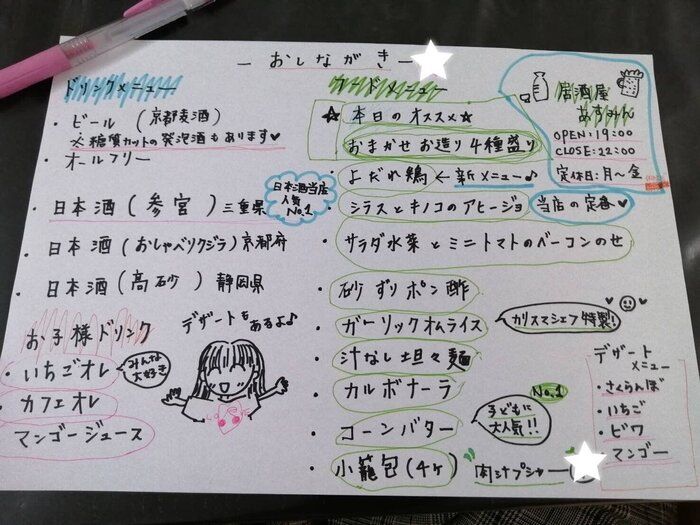 ー おしながき ー
ドリンクメニュー
・ビール (京都麦酒)
※糖質カットの発泡酒もあります♥
・オールフリー
・日本酒(參宮)三重県
日本酒当店人気No.1
・日本酒(おしゃべりクジラ)京都府
・日本酒(高砂)静岡県
お子様ドリンク
・いちごオレ
みんな大好き
・カフェオレ
マンゴージュース
デザートもあるよ♪
フードメニュー
☆本日のオススメ☆
おまかせ お造り 4種盛り
・よだれ鶏 ← 新メニュー♪
・シラスとキノコのアヒージョ
当店の定番♥
・サラダ水菜とミニトマトのベーコンのせ
・砂ずりポン酢
・ガーリックオムライス
カリスマシェフ特製!
・汁なし坦々麺
・カルボナーラ
・コーンバター
No.1
子どもに大人気!!
・小籠包(4ヶ)
肉汁プシャー
居酒屋
OPEN:19:00
CLOSE:22:00
定休日:月〜金
デザートメニュー
・さくらんぼ
・いちご
・ビワ
マンゴー